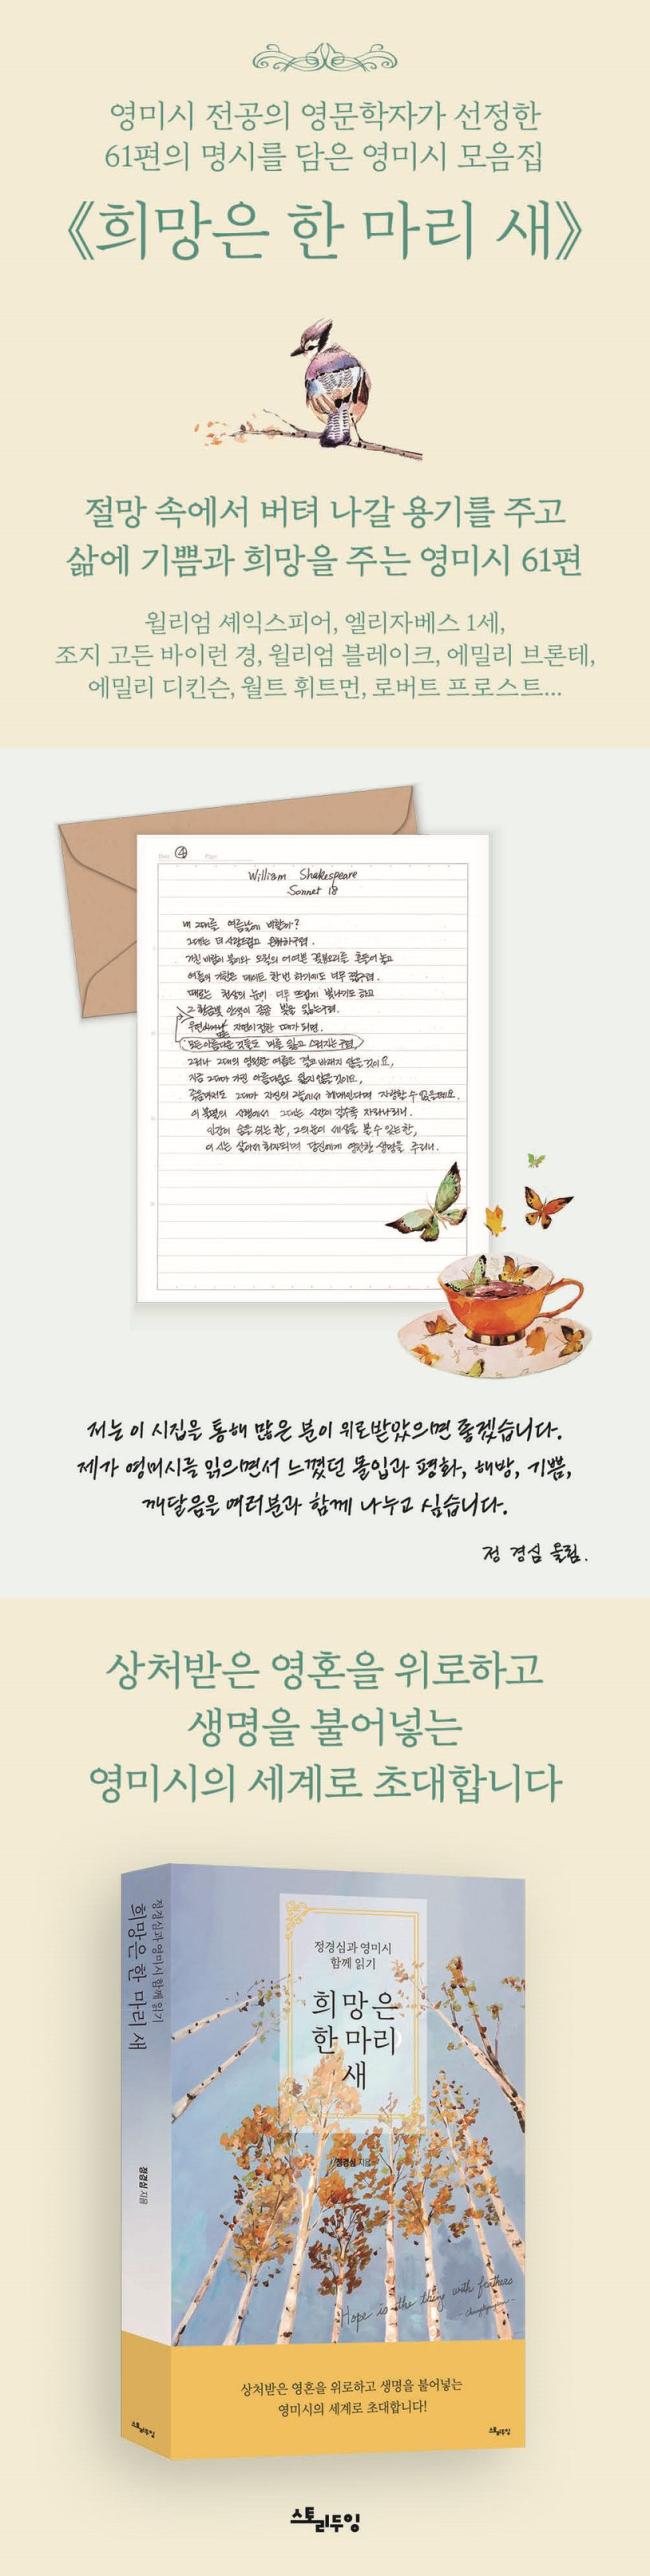 영미시 전공의 영문학자가 선정한
61편의 명시를 담은 영미시 모음집
《희망은 한 마리 새》
절망 속에서 버텨 나갈 용기를 주고
삶에 기쁨과 희망을 주는 영미시 61편
윌리엄 셰익스피어, 엘리자베스 1세,
조지 고든 바이런 경, 윌리엄 블레이크, 에밀리 브론테,
에밀리 디킨슨, 월트 휘트먼, 로버트 프로스트...
Date ④ Page
William Shakespeare
Sonnet 18
내 그대를 여름날에 비할까?
그대는 더 사랑스럽고 온화하구려.
거친 바람이 불어와 오월의 어여쁜 꽃봉오리를 흔들어 놓고
여름의 기한은 데이트 한 번 하기에도 너무 짧구려.
때로는 천상의 눈이 너무 뜨겁게 빛나기도 하고
그 황금빛 안색이 종종 빛을 잃는구려.
자연이 정한 때가 되면,
모든 아름다운 것들도 미를 잃고 스러지는구려,
그러나 그대의 영원한 여름은 결코 바래지 않을 것이오,
지금 그대가 가진 아름다움도 잃지 않을 것이오,
죽음마저도 그대가 자신의 그늘에서 헤매인다며 자랑할 수 없을테요.
이 불멸의 시행에서 그대는 시간이 갈수록 자라나리니.
인간이 숨을 쉬는 한, 그의 눈이 세상을 볼 수 있는 한,
이 시는 살아서 회자되며 당신에게 영원한 생명을 주리니.
저는 이 시집을 통해 많은 분이 위로받았으면 좋겠습니다.
제가 영미시를 읽으면서 느꼈던 몰입과 평화, 해방, 기쁨,
깨달음을 여러분과 함께 나누고 싶습니다.
정 경심 올림.
상처받은 영혼을 위로하고
생명을 불어넣는
영미시의 세계로 초대합니다
정경심과 영미시 함께 읽기
희망은 한 마리 새
정경심 지음
스토리두잉
정경심과 영미시
함께 읽기
희망은
한 마리
새
정경심 지음
Hope is the thing with feathers
상처받은 영혼을 위로하고 생명을 불어넣는
영미시의 세계로 초대합니다!
스토리두잉
스토리두잉